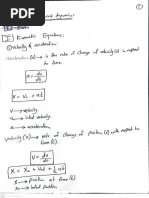 I Kinematic Equations:
① velocity & acceleration
acceleration (a) → is the rate of change of velocity (v) w respect
to time.
a = dv/dt
V = V₀ + at
V → velocity.
V₀ → initial velocity.
a → acceleration.
velocity (v) → rate of change of position (x) with respect
to time.
V = dx/dt
X = X₀ + V₀t + ½at²
X → position at time (t).
X₀ → initial position.